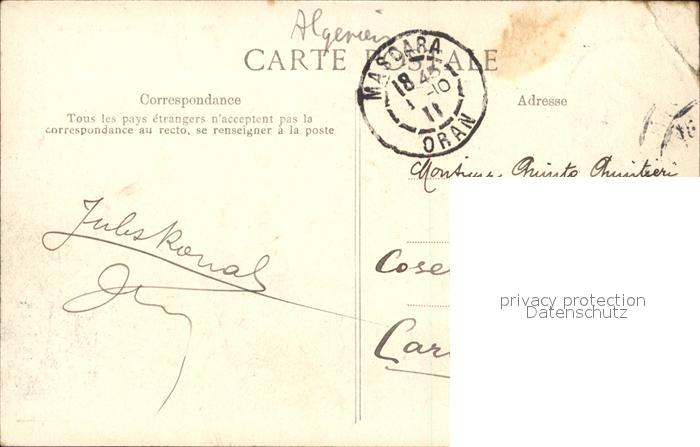 Algerien
CARTE POSTALE
MASCARA
18 45
1 -10
11
ORAN
Correspondance
Adresse
Tous les pays étrangers n'acceptent pas la
correspondance au recto, se renseigner à la poste
16
Monsieur Quinto Quintieri
Jules
Cose
privacy protection
Datenschutz
Car